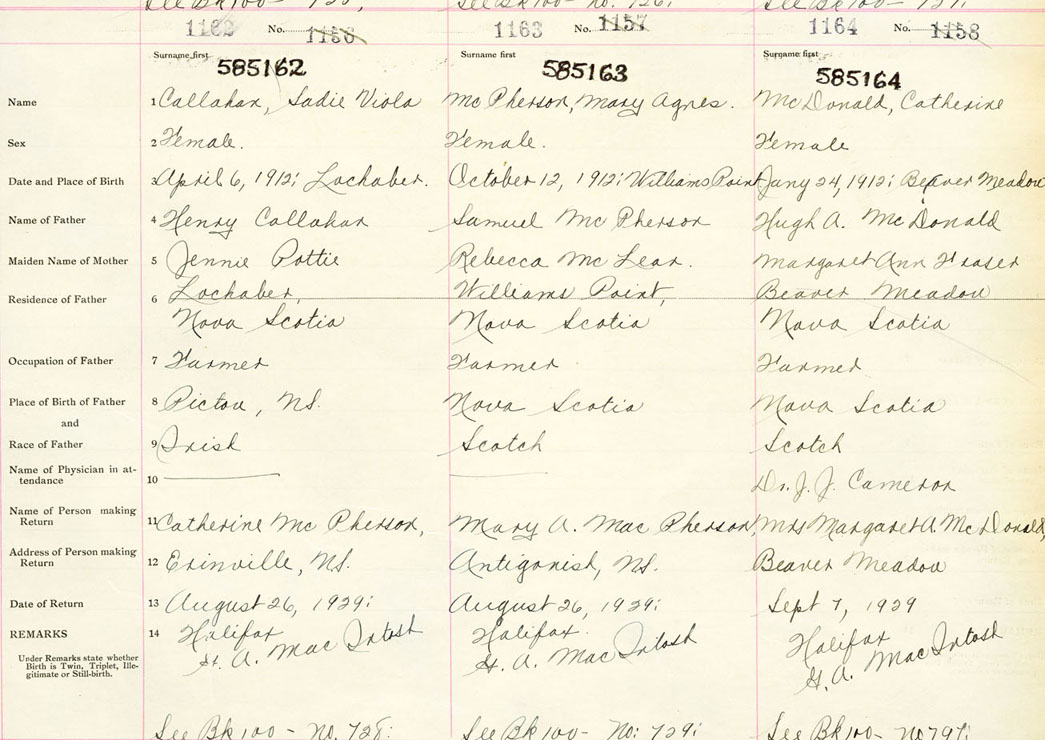 See Bk 100 - See Bk 100 - No. 726; See Bk 100 - 727;
1162 No. 1156 1163 No. 1157 1164 No. 1158
Surname first Surname first Surname first
585162 585163 585164
Name 1 Callahan, Sadie Viola Mc Pherson, Mary Agnes. Mc Donald, Catherine
Sex 2 Female. Female. Female
Date and Place of Birth 3 April 6, 1912; Lochaber. October 12, 1912; Williams Point Jany 24, 1912; Beaver Meadow
Name of Father 4 Henry Callahan Samuel Mc Pherson Hugh A. Mc Donald
Maiden Name of Mother 5 Jennie Pottie Rebecca Mc Lean. Margaret Ann Fraser
Residence of Father 6 Lochaber, Williams Point, Beaver Meadow
Nova Scotia Nova Scotia Nova Scotia
Occupation of Father 7 Farmer Farmer Farmer
Place of Birth of Father 8 Pictou, N.S. Nova Scotia Nova Scotia
and
Race of Father 9 Irish Scotch Scotch
Name of Physician in at-
tendance 10 Dr. J. J. Cameron
Name of Person making
Return 11 Catherine Mc Pherson, Mary A. Mac Pherson, Mrs Margaret A. Mc Donald,
Address of Person making
Return 12 Erinville, N.S. Antigonish, N.S. Beaver Meadow
Date of Return 13 August 26, 1939; August 26, 1939; Sept 7, 1939
REMARKS 14 Halifax Halifax. Halifax
H. A. Mac Intosh H. A. Mac Intosh H. A. Mac Intosh
Under Remarks state whether
Birth is Twin, Triplet, Ille-
gitimate or Still-birth.
See Bk 100 - No. 728; See Bk 100 - No: 729; See Bk 100 - No 797;